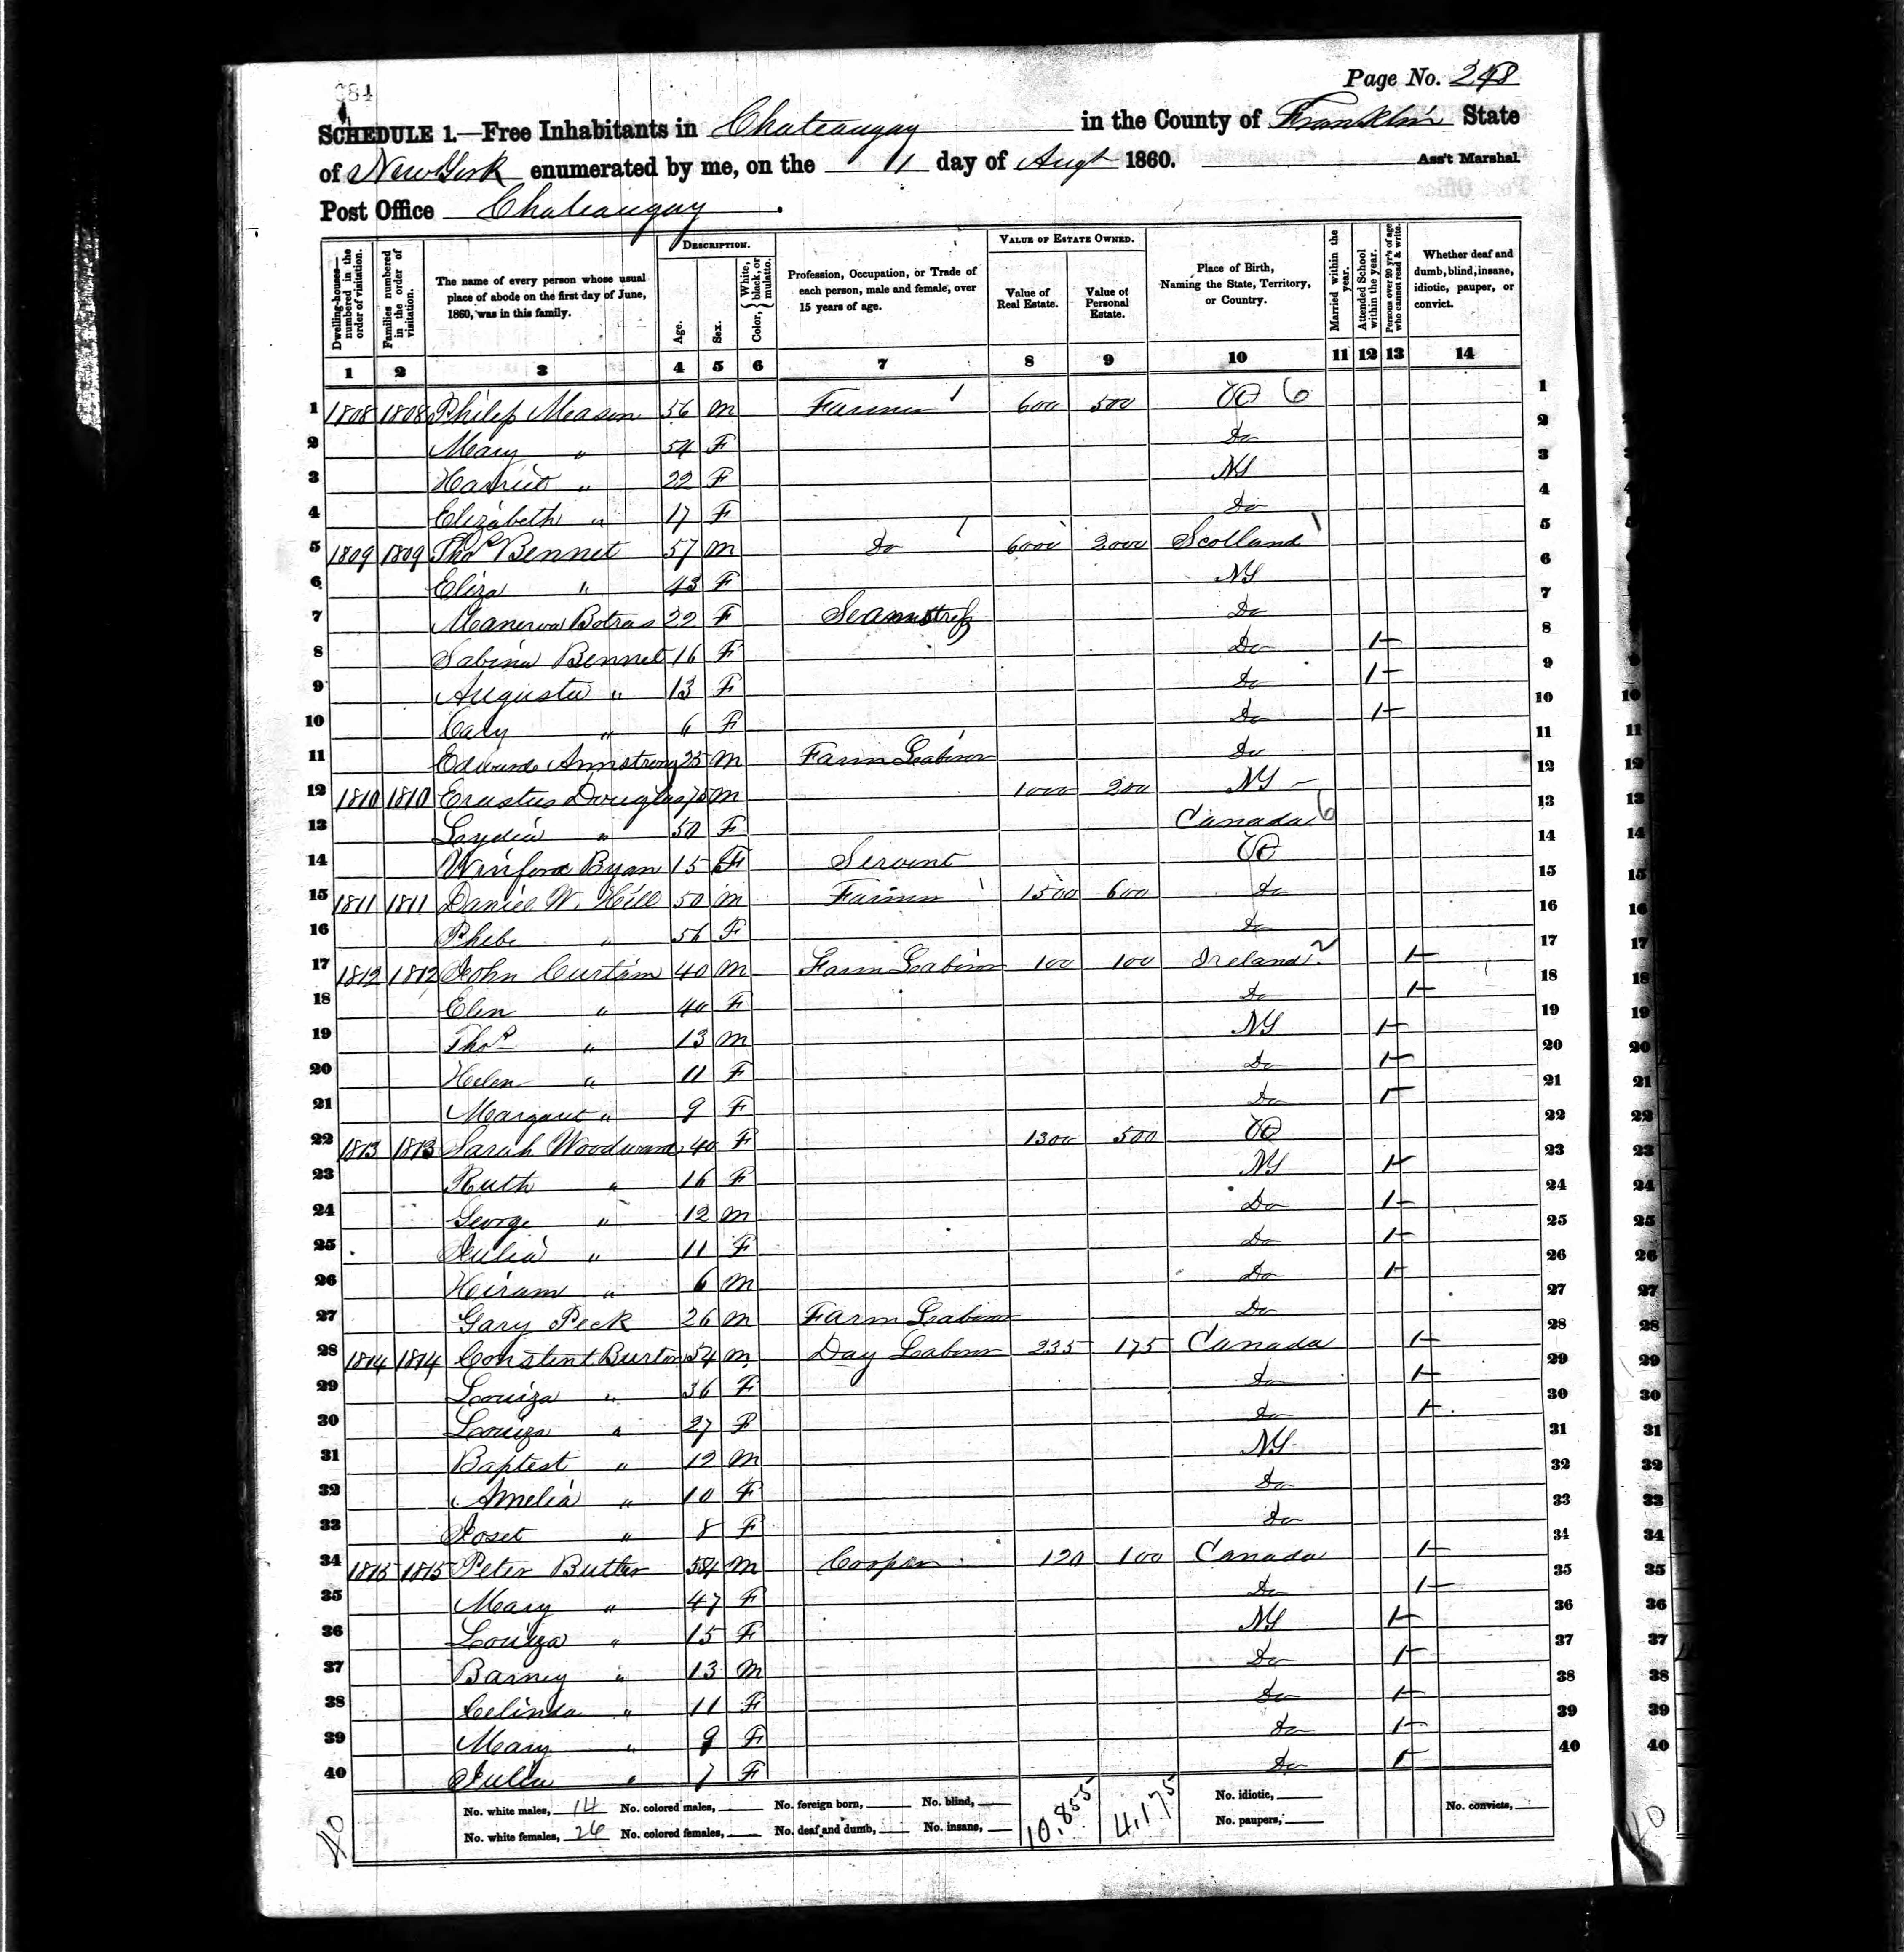 Page No. 248
684
SCHEDULE 1.—Free Inhabitants in Chateaugay in the County of Franklin State
of New York enumerated by me, on the 1 day of Augt 1860. Ass't Marshal.
Post Office Chateaugay.
Dwelling-houses—numbered in the order of visitation.
Families numbered in the order of visitation.
The name of every person whose usual place of abode on the first day of June, 1860, was in this family.
DESCRIPTION.
Age.
Sex.
Color, White, black, or mulatto.
Profession, Occupation, or Trade of each person, male and female, over 15 years of age.
VALUE OF ESTATE OWNED.
Value of Real Estate.
Value of Personal Estate.
Place of Birth, Naming the State, Territory, or Country.
Married within the year.
Attended School within the year.
Persons over 20 yr's of age who cannot read & write.
Whether deaf and dumb, blind, insane, idiotic, pauper, or convict.
1 2 3 4 5 6 7 8 9 10 11 12 13 14
1 1808 1808 Philip Meason 56 m Farmer 600 500 Vt 6 1
2 Mary " 54 F Do 2
3 Harriet " 22 F NY 3
4 Elizabeth " 17 F Do 4
5 1809 1809 Thos Bennet 57 m Do 6000 2000 Scotland 5
6 Eliza " 43 F NY 6
7 Manerva Botras 22 F Seamstress Do 7
8 Sabina Bennet 16 F Do 1 8
9 Augusta " 13 F Do 1 9
10 Caly " 6 F Do 1 10
11 Edward Armstrong 25 m Farm Labour Do 11
12 1810 1810 Erastus Douglas 75 m 1000 200 NY 12
13 Lydia " 50 F Canada 6 13
14 Byan 15 F Servent Vt 14
15 1811 1811 Daniel W. Hill 50 m Farmer 1500 600 Do 15
16 Phebe " 56 F Do 16
17 1812 1812 John Curtain 40 m Farm Labour 100 100 Ireland 2 1 17
18 Elen " 40 F Do 1 18
19 Thos " 13 m NY 1 19
20 Helen " 11 F Do 1 20
21 Margaret " 9 F Do 1 21
22 1813 1813 Sarah Woodward 40 F 1300 500 Vt 22
23 Ruth " 16 F NY 1 23
24 George " 12 m Do 1 24
25 Julia " 11 F Do 1 25
26 Hiram " 6 m Do 1 26
27 Gary Peck 26 m Farm Labour Do 27
28 1814 1814 Constent Burton 54 m Day Labour 235 175 Canada 1 28
29 Louiza " 36 F Do 1 29
30 Louiza " 27 F Do 1 30
31 Baptest " 12 m NY 31
32 Amelia " 10 F Do 32
33 Joset " 8 F Do 33
34 1815 1815 Peter Butler 54 m Cooper 120 100 Canada 1 34
35 Mary " 47 F Do 1 35
36 Louiza " 15 F NY 1 36
37 Barney " 13 m Do 1 37
38 Celinda " 11 F Do 1 38
39 Mary " 9 F Do 1 39
40 Julia " 7 F Do 1 40
40 No. white males, 14 No. colored males, No. foreign born, No. blind, 10,855 4,175 No. idiotic, No. convicts, 40
No. white females, 26 No. colored females, No. deaf and dumb, No. insane, No. paupers,